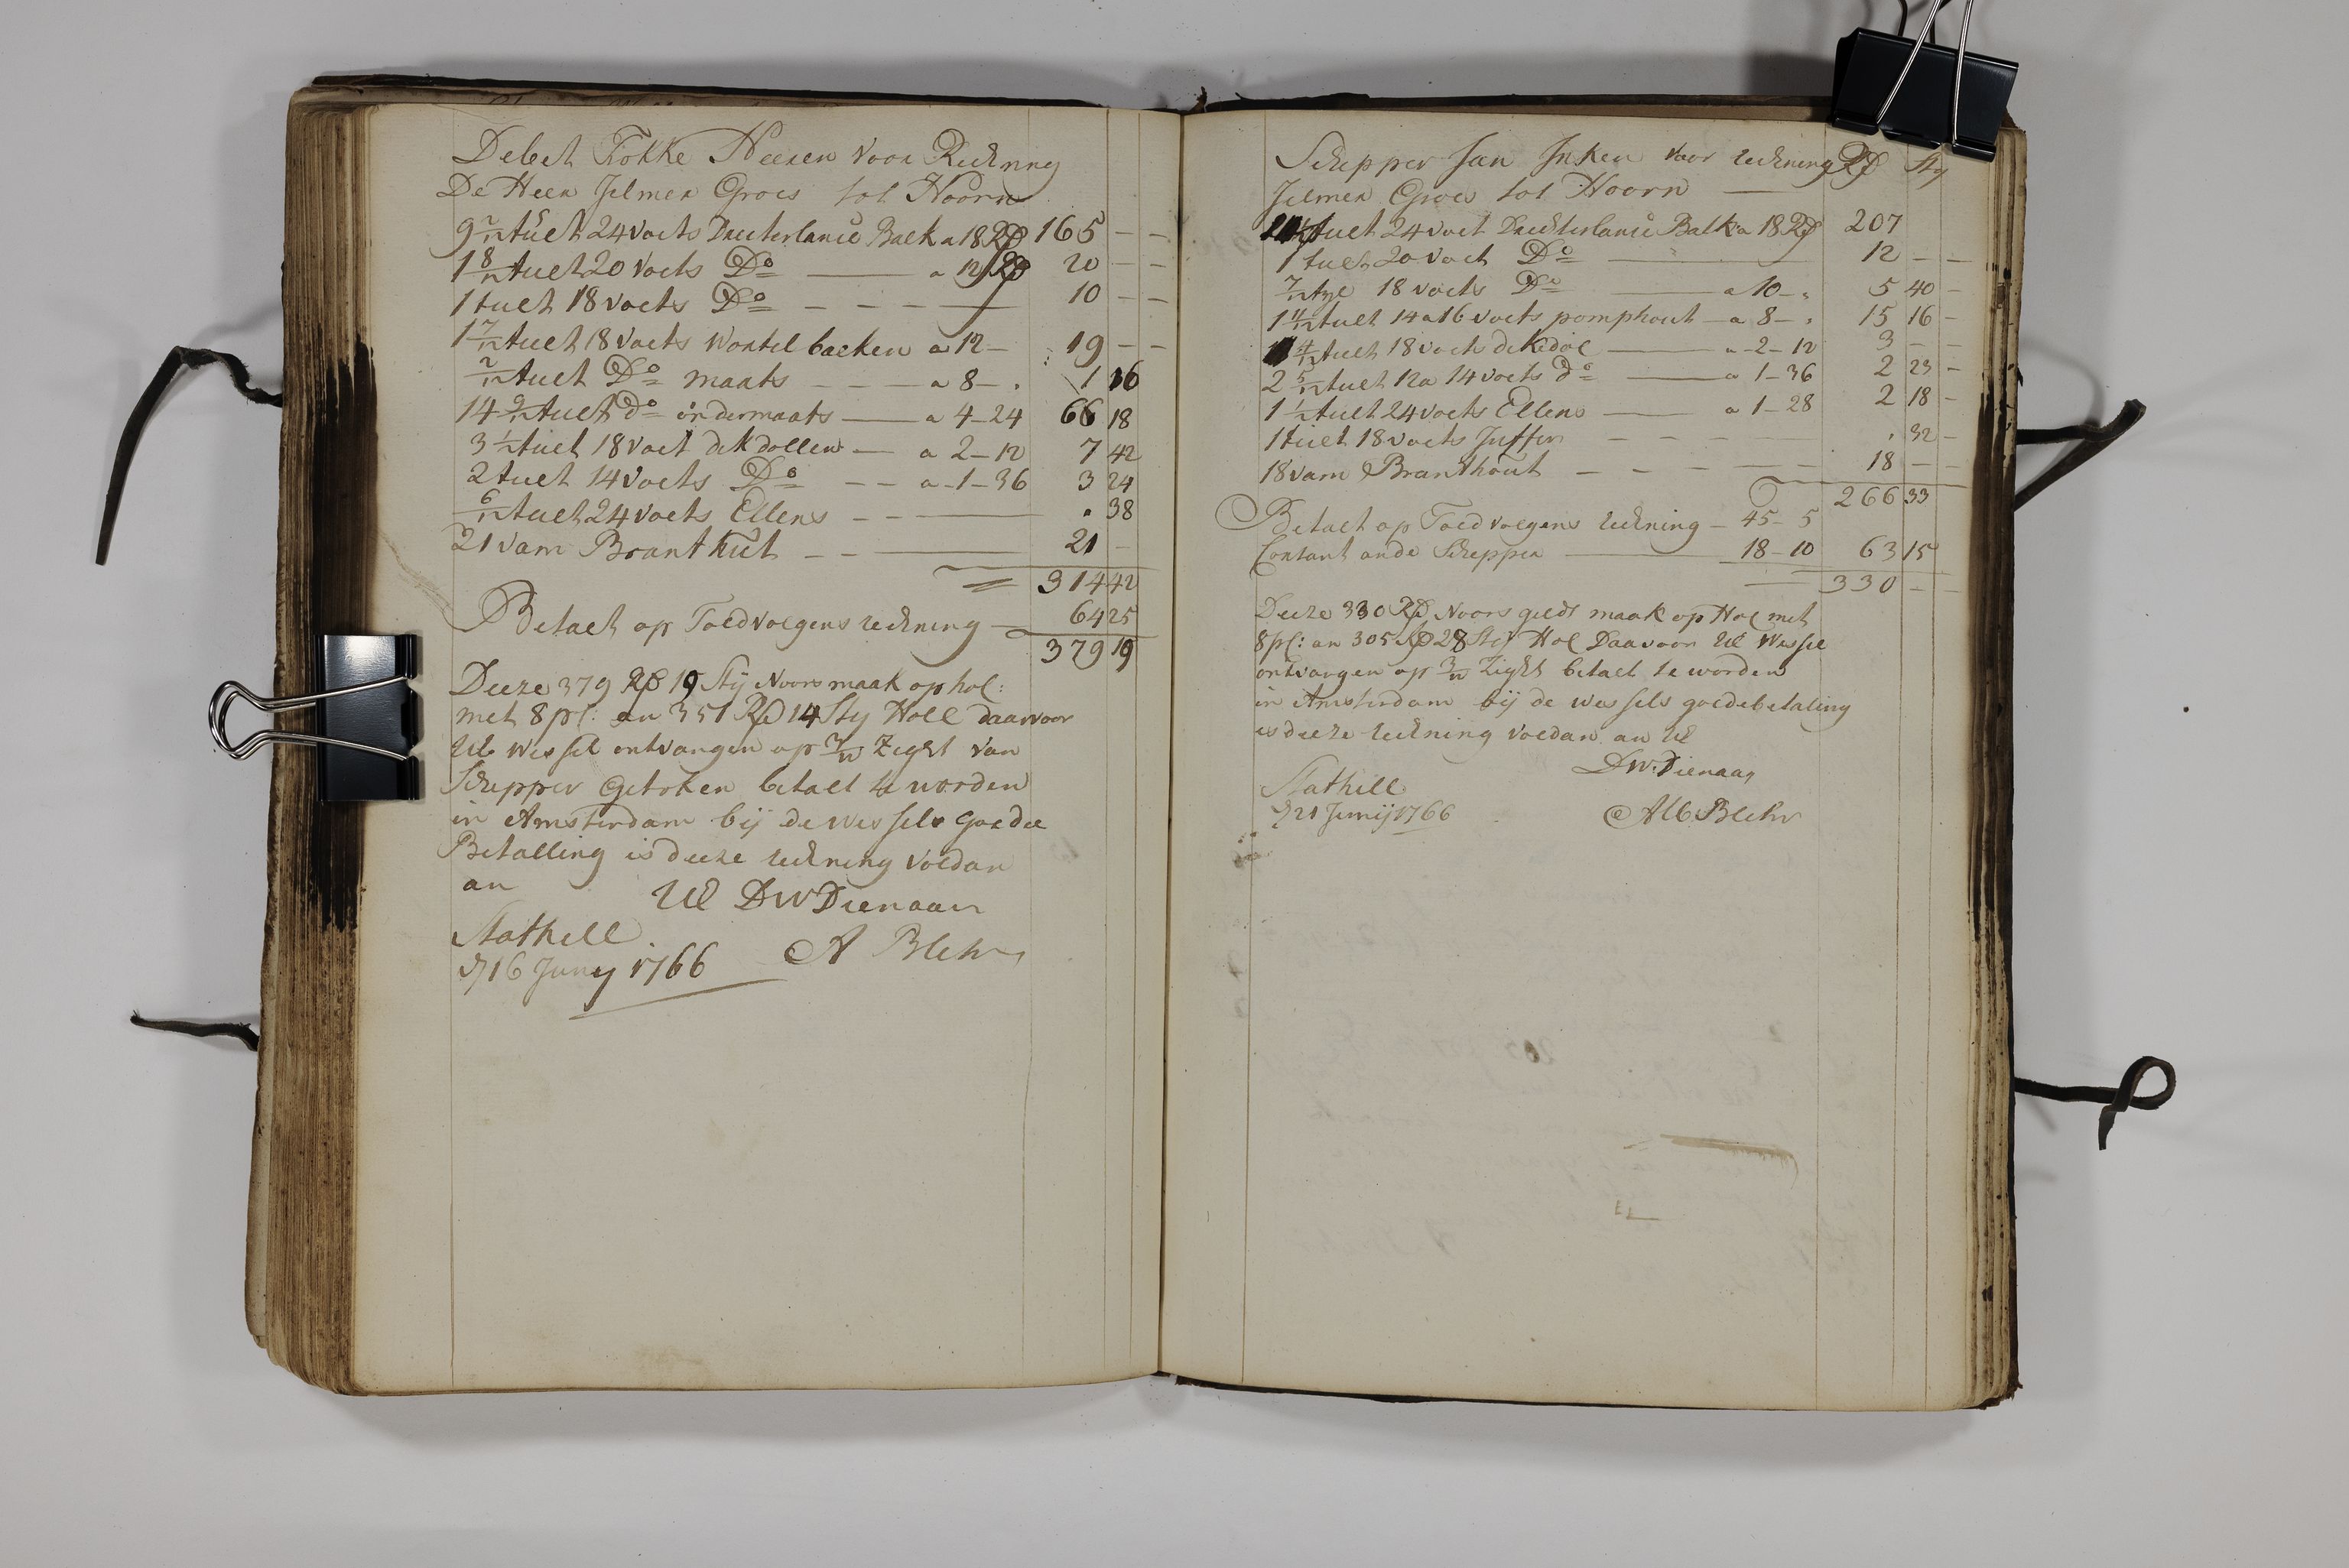 Debet Fokke Heeren voor Reckning
De Heer Jelmer Groes tot Hoorn
9 2/12 tuelt 24 voets Druchterlance Balk a 18 RD 165 - -
1 8/12 tuelt 20 voets Do a 12 RD 20 - -
1 tuelt 18 voets Do - - - 10 - -
1 7/12 tuelt 18 voets wortel balken a 12 - 19 - -
2/12 tuelt Do maats - - - a 8 - . 1 16
14 9/12 tuelt do ondermaats a 4-24 66 18
3 1/2 tuelt 18 voet dekdollen a 2-12 7 42
2 tuelt 14 voets Do - - a -1-36 3 24
6/12 tuelt 24 voets Ellens - - 38
21 vam Branthut - - 21 -
314 42
Betaelt op Toedvolgens reckning 64 25
379 19
Deeze 379 RD 19 Sty Noors maak op hol:
met 8 pC: an 351 RD 14 Sty Holl daarvoor
UE wessel ontvangen op 3/m Zight van
Schepper getroken betaelt te worden
in Amsterdam bij de wessels goede
Betalling is deeze reckning voldan
an UE DW Dienaar
Stathell
d 16 Juny 1766 A Blehr
Schepper Jan Inken voor reckning RD Sty
Jelmer Groes tot Hoorn
11 1/2 tuelt 24 voet Druchterlance Balk a 18 RD 207
1 tuelt 20 voet Do 12 - -
7/12 tyl 18 voets Do a 10 - . 5 40 -
1 11/12 tuelt 14 a 16 voets pomphout a 8 - . 15 16 -
1 4/12 tuelt 18 voets dekdoel a -2-12 3 - -
2 5/12 tuelt 12 a 14 voets do a 1-36 2 23 -
1 1/2 tuelt 24 voets Ellens a 1-28 2 18 -
1 tuelt 18 voets Juffer - - - . 32 -
18 vam Branthout - - - 18 - -
266 33
Betaelt op Toedvolgens reckning - 45-5
Contant ande Schepper 18-10 63 15
330 - -
Deeze 330 RD Noors geldt maak op Hol met
8 pC: an 305 RD 28 Sty Hol Daarvoor UE Wessel
ontvangen op 3/m Zight betaelt te worden
in Amsterdam bij de wessels goedebetaling
is deeze reckning voldan an UE
DW: Dienaar
Stathell
d 21 Junij 1766 Alb Blehr